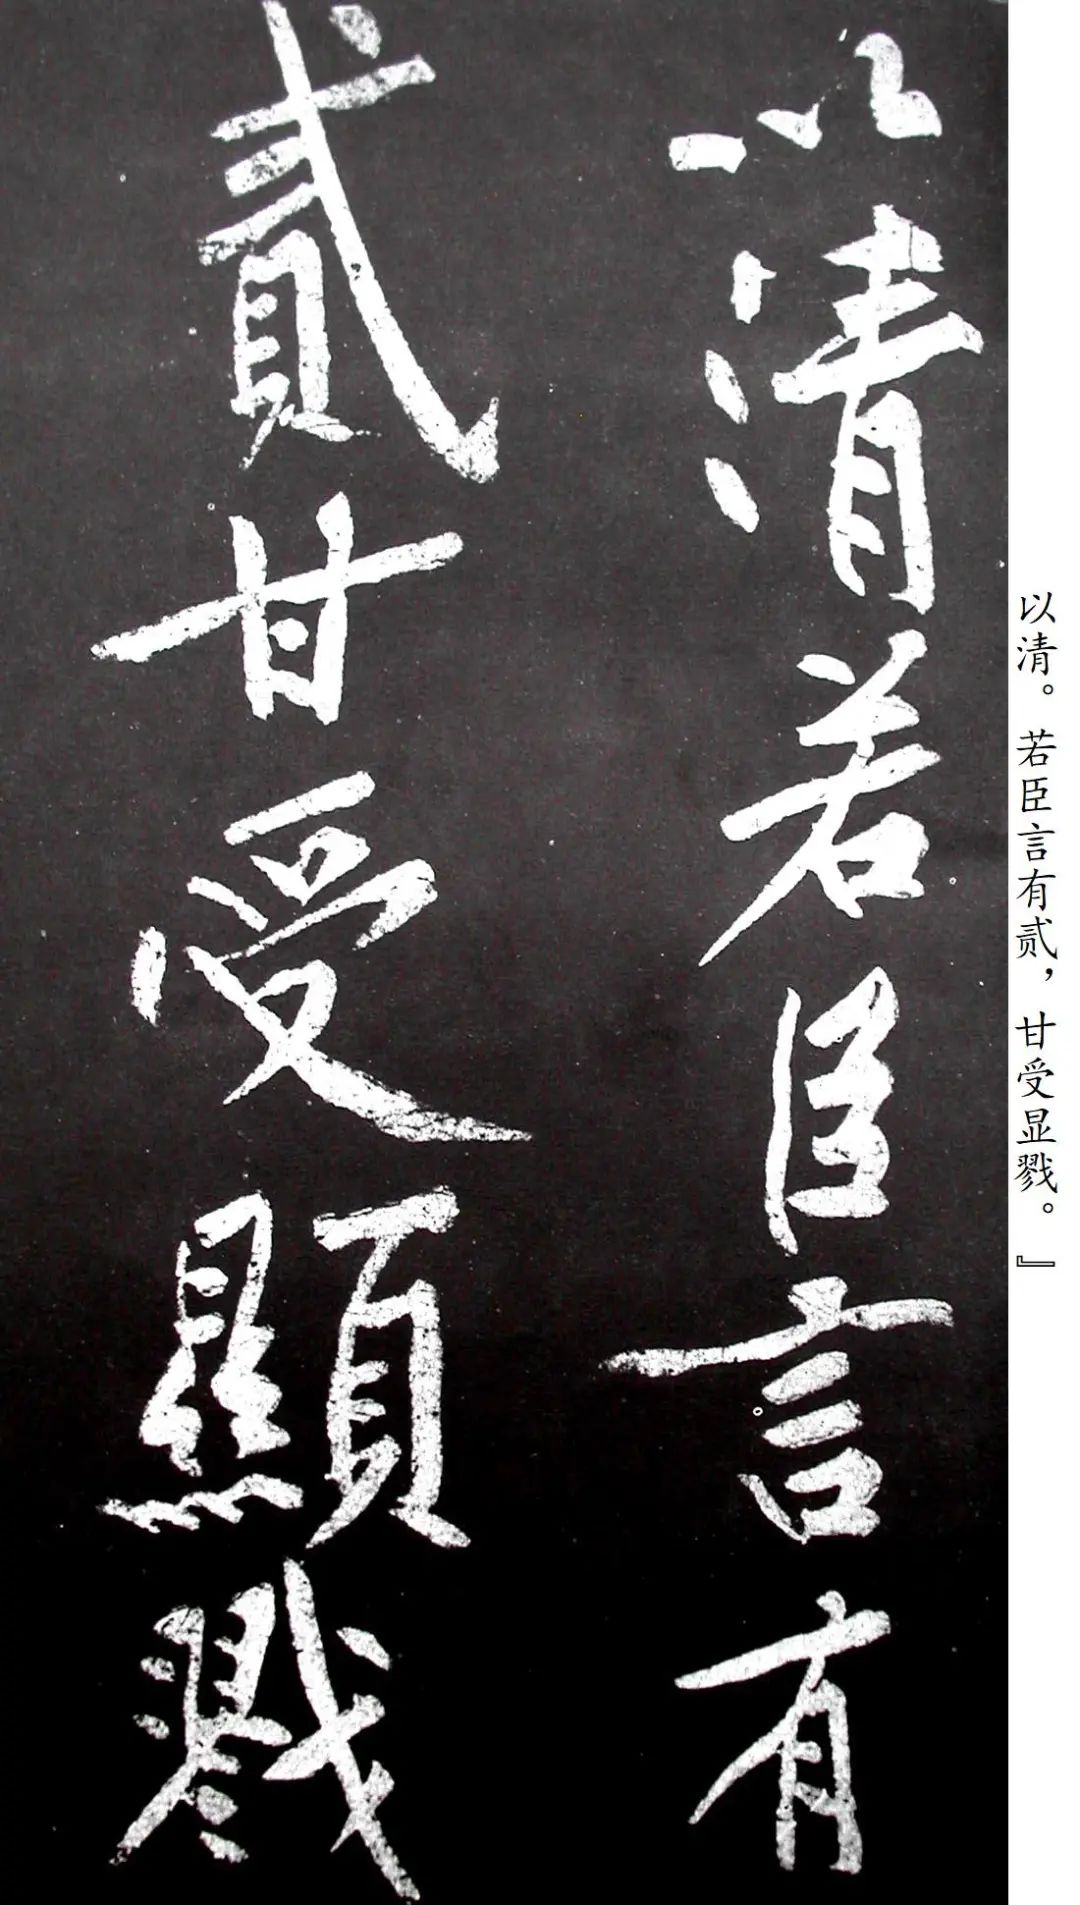 以清若臣言有
貳甘受顯戮
以清。若臣言有贰，甘受显戮。』